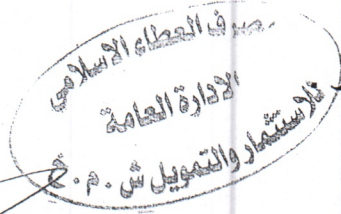 مصرف العطاء الاسلامي
الادارة العامة
للاستثمار والتمويل ش.م.خ